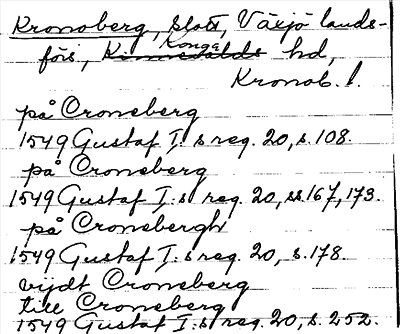 Kronoberg, slott, Växjö lands-
förs, Kinnevalds Konga hd,
Kronob. l.
på Croneberg
1549 Gustaf I:s reg. 20, s. 108.
på Croneberg
1549 Gustaf I:s reg. 20, ss. 167, 173.
på Cronebergh
1549 Gustaf I:s reg. 20, s. 178.
vijdt Croneberg
till Croneberg
1549 Gustaf I:s reg. 20, s. 252.